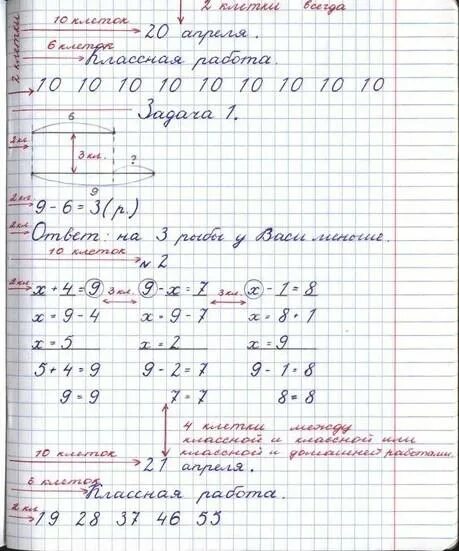 2 клетки всегда
10 клеток 20 апреля.
6 клеток Классная работа.
2 клетки 10 10 10 10 10 10 10 10 10
Задача 1.
6
2 кл. 3 кл. ?
9
2 кл. 9 - 6 = 3 (р.)
2 кл. Ответ: на 3 рыбы у Васи меньше.
10 клеток № 2
2 кл. x + 4 = 9 3 кл. 9 - x = 7 3 кл. x - 1 = 8
x = 9 - 4 x = 9 - 7 x = 8 + 1
x = 5 x = 2 x = 9
5 + 4 = 9 9 - 2 = 7 9 - 1 = 8
9 = 9 7 = 7 8 = 8
4 клетки между
классной и классной или
классной и домашней работами.
10 клеток 21 апреля.
6 клеток Классная работа.
2 кл. 19 28 37 46 55